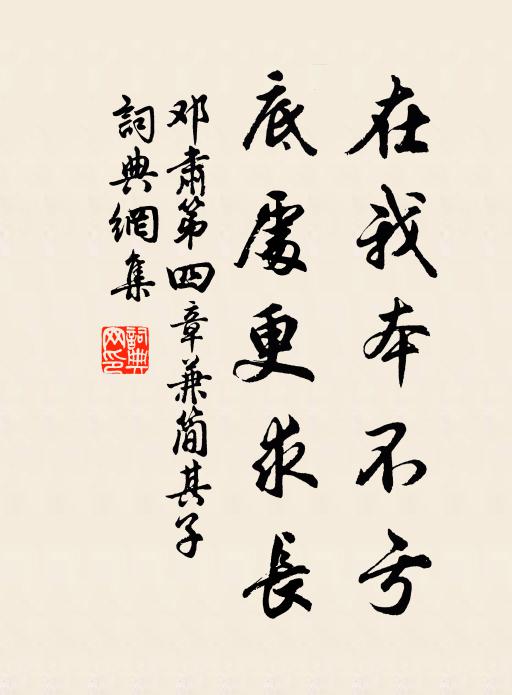 在我本不亏
底處更求長
邓肅第四章兼简其子
詞典網集
詞典网印